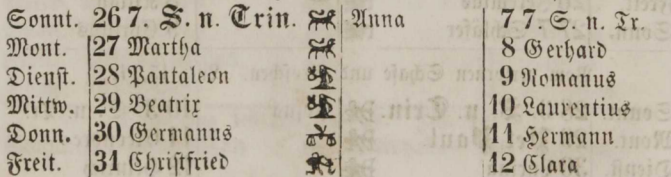 Sonnt. 26 7. S. n. Trin. Anna 7 7. S. n. Tr.
Mont. 27 Martha 8 Gerhard
Dienst. 28 Pantaleon 9 Romanus
Mittw. 29 Beatrix 10 Laurentius
Donn. 30 Germanus 11 Hermann
Freit. 31 Christfried 12 Clara